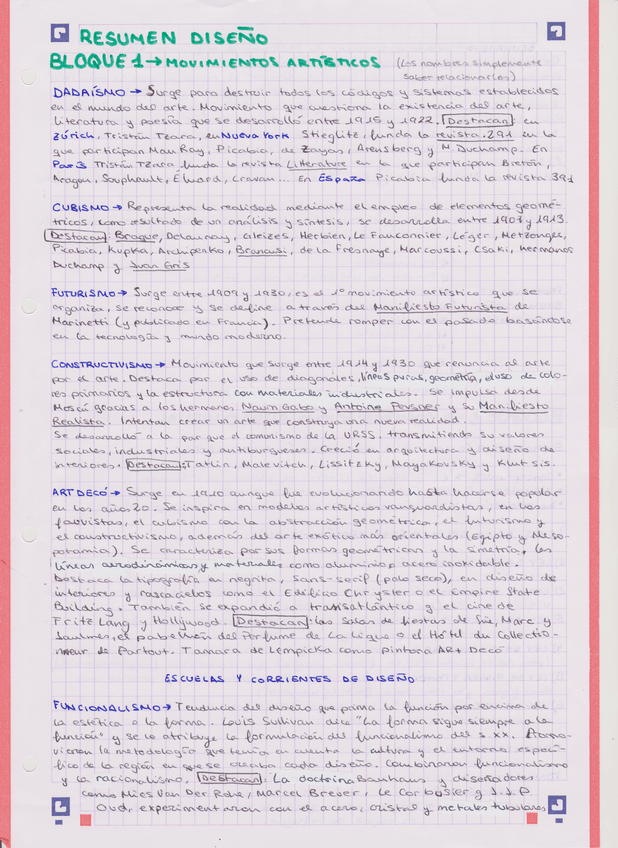 RESUMEN DISEÑO
BLOQUE 1 → MOVIMIENTOS ARTÍSTICOS (Los nombres simplemente
saber relacionarlos)
DADAÍSMO → Surge para destruir todos los códigos y sistemas establecidos
en el mundo del arte. Movimiento que cuestiona la existencia del arte,
literatura y poesía que se desarrolló entre 1915 y 1922. Destacan: en
Zúrich, Tristan Tzara, en Nueva York Stieglitz, funda la revista 291 en la
que participan Man Ray, Picabia, de Zayas, Arensberg y M Duchamp. En
París Tristan Tzara funda la revista Litterature en la que participan Bretón,
Aragon, Souphault, Éluard, Cravan... En España Picabia funda la revista 391
CUBISMO → Representa la realidad mediante el empleo de elementos geomé-
tricos, como resultado de un análisis y síntesis, se desarrolla entre 1907 y 1913.
Destacan: Braque, Delaunay, Gleizes, Herbien, Le Fauconnier, Léger, Metzonger,
Picabia, Kupka, Archipenko, Brancusi, de la Fresnaye, Marcoussi, Csaki, hermanos
Duchamp y Juan Gris
FUTURISMO → Surge entre 1909 y 1930, es el 1º movimiento artístico que se
organiza, se reconoce y se define a través del Manifiesto Futurista de
Marinetti (y publicado en Francia). Pretende romper con el pasado basándose
en la tecnología y mundo moderno.
CONSTRUCTIVISMO → Movimiento que surge entre 1914 y 1930 que renuncia al arte
por el arte. Destaca por el uso de diagonales, líneas puras, geometría, el uso de colo-
res primarios y la estructura con materiales industriales. Se impulsa desde
Moscú gracias a los hermanos Naum Gabo y Antoine Pevsner y su Manifiesto
Realista. Intentan crear un arte que construya una nueva realidad.
Se desarrolló a la par que el comunismo de la URSS, transmitiendo su valores
sociales, industriales y antiburgueses. Creció en arquitectura y diseño de
interiores. Destacan: Tatlin, Malevitch, Lissitzky, Mayakovsky y Klutsis.
ART DECÓ → Surge en 1910 aunque fue evolucionando hasta hacerse popular
en los años 20. Se inspira en modelos artísticos vanguardistas, en los
fauvistas, el cubismo con la abstracción geométrica, el futurismo y
el constructivismo, además del arte exótico más orientales (Egipto y Meso-
potamia). Se caracteriza por sus formas geométricas y la simetría, las
líneas aerodinámicas y materiales como aluminio y acero inoxidable.
Destaca la tipografía en negrita, sans-serif (palo seco), en diseño de
interiores y rascacielos como el Edificio Chrysler o el Empire State
Building. También se expandió a transatlántico y el cine de
Fritz Lang y Hollywood. Destacan: las Salas de fiestas de Süe, Marc y
Laulmes, el pabellón del Perfume de La Lique o el Hótel du Collectio-
nneur de Partout. Tamara de Lempicka como pintora Art Decó
ESCUELAS Y CORRIENTES DE DISEÑO
FUNCIONALISMO → Tendencia del diseño que prima la función por encima de
la estética o la forma. Louis Sullivan dice "la forma sigue siempre a la
función" y se le atribuye la formulación del funcionalismo del s. XX. Promo-
vieron la metodología que tenía en cuenta la cultura y el entorno especí-
fico de la región en que se creaba cada diseño. Combinaron funcionalismo
y la racionalismo. Destacan: La doctrina Bauhaus y diseñadores
como Mies Van Der Rohe, Marcel Breuer, Le Corbusier y J.J.P
Oud, experimentaron con el acero, cristal y metales tubulares.